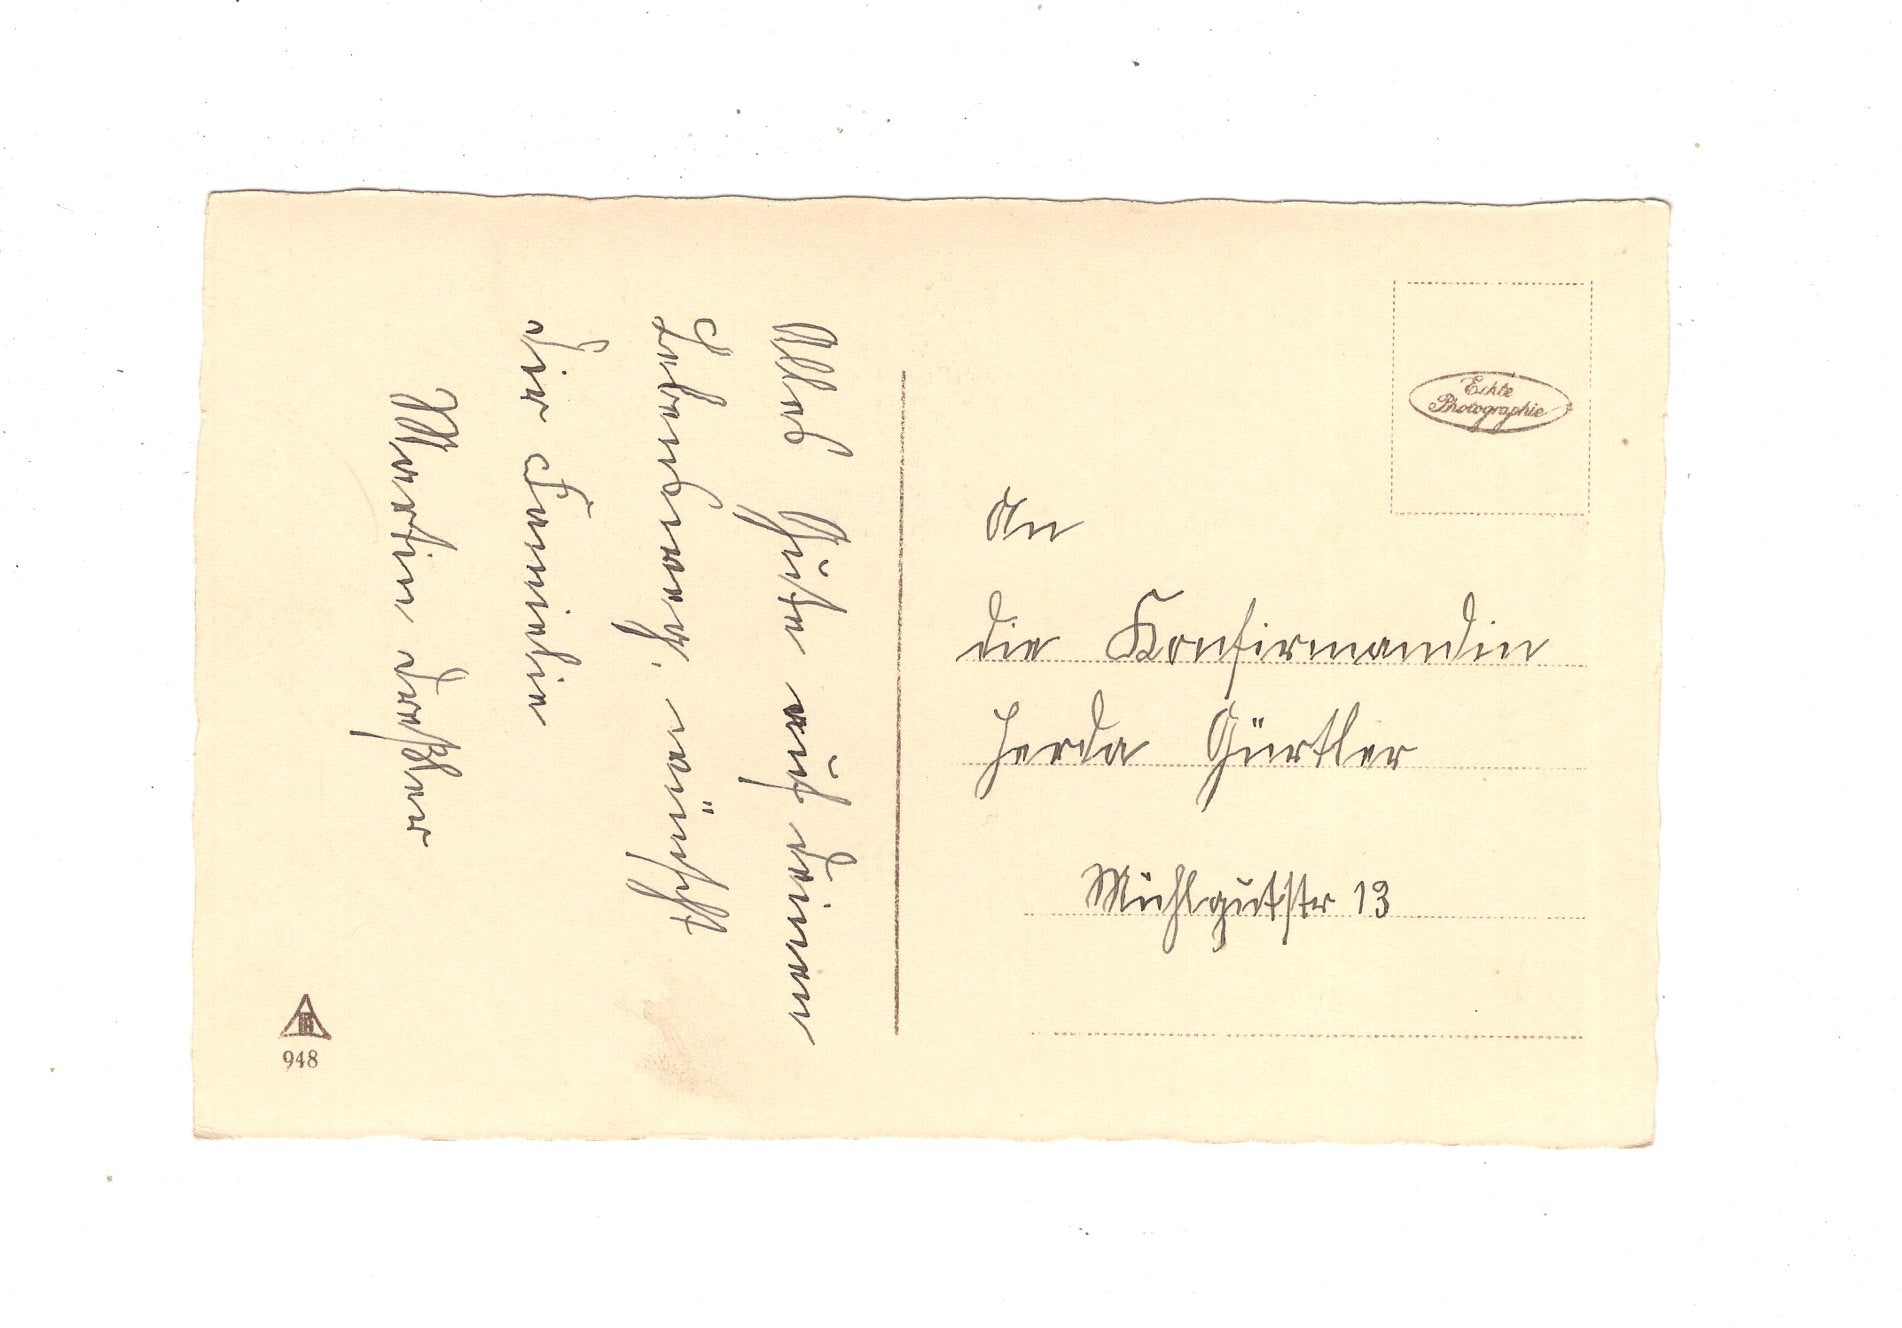 Alles Gute auf deinem
Lebensweg, wünscht
dir Familie
Martin
948
Echte
Photographie
An
die Konfirmandin
Herda Gürtler
Mühlgutstr 13